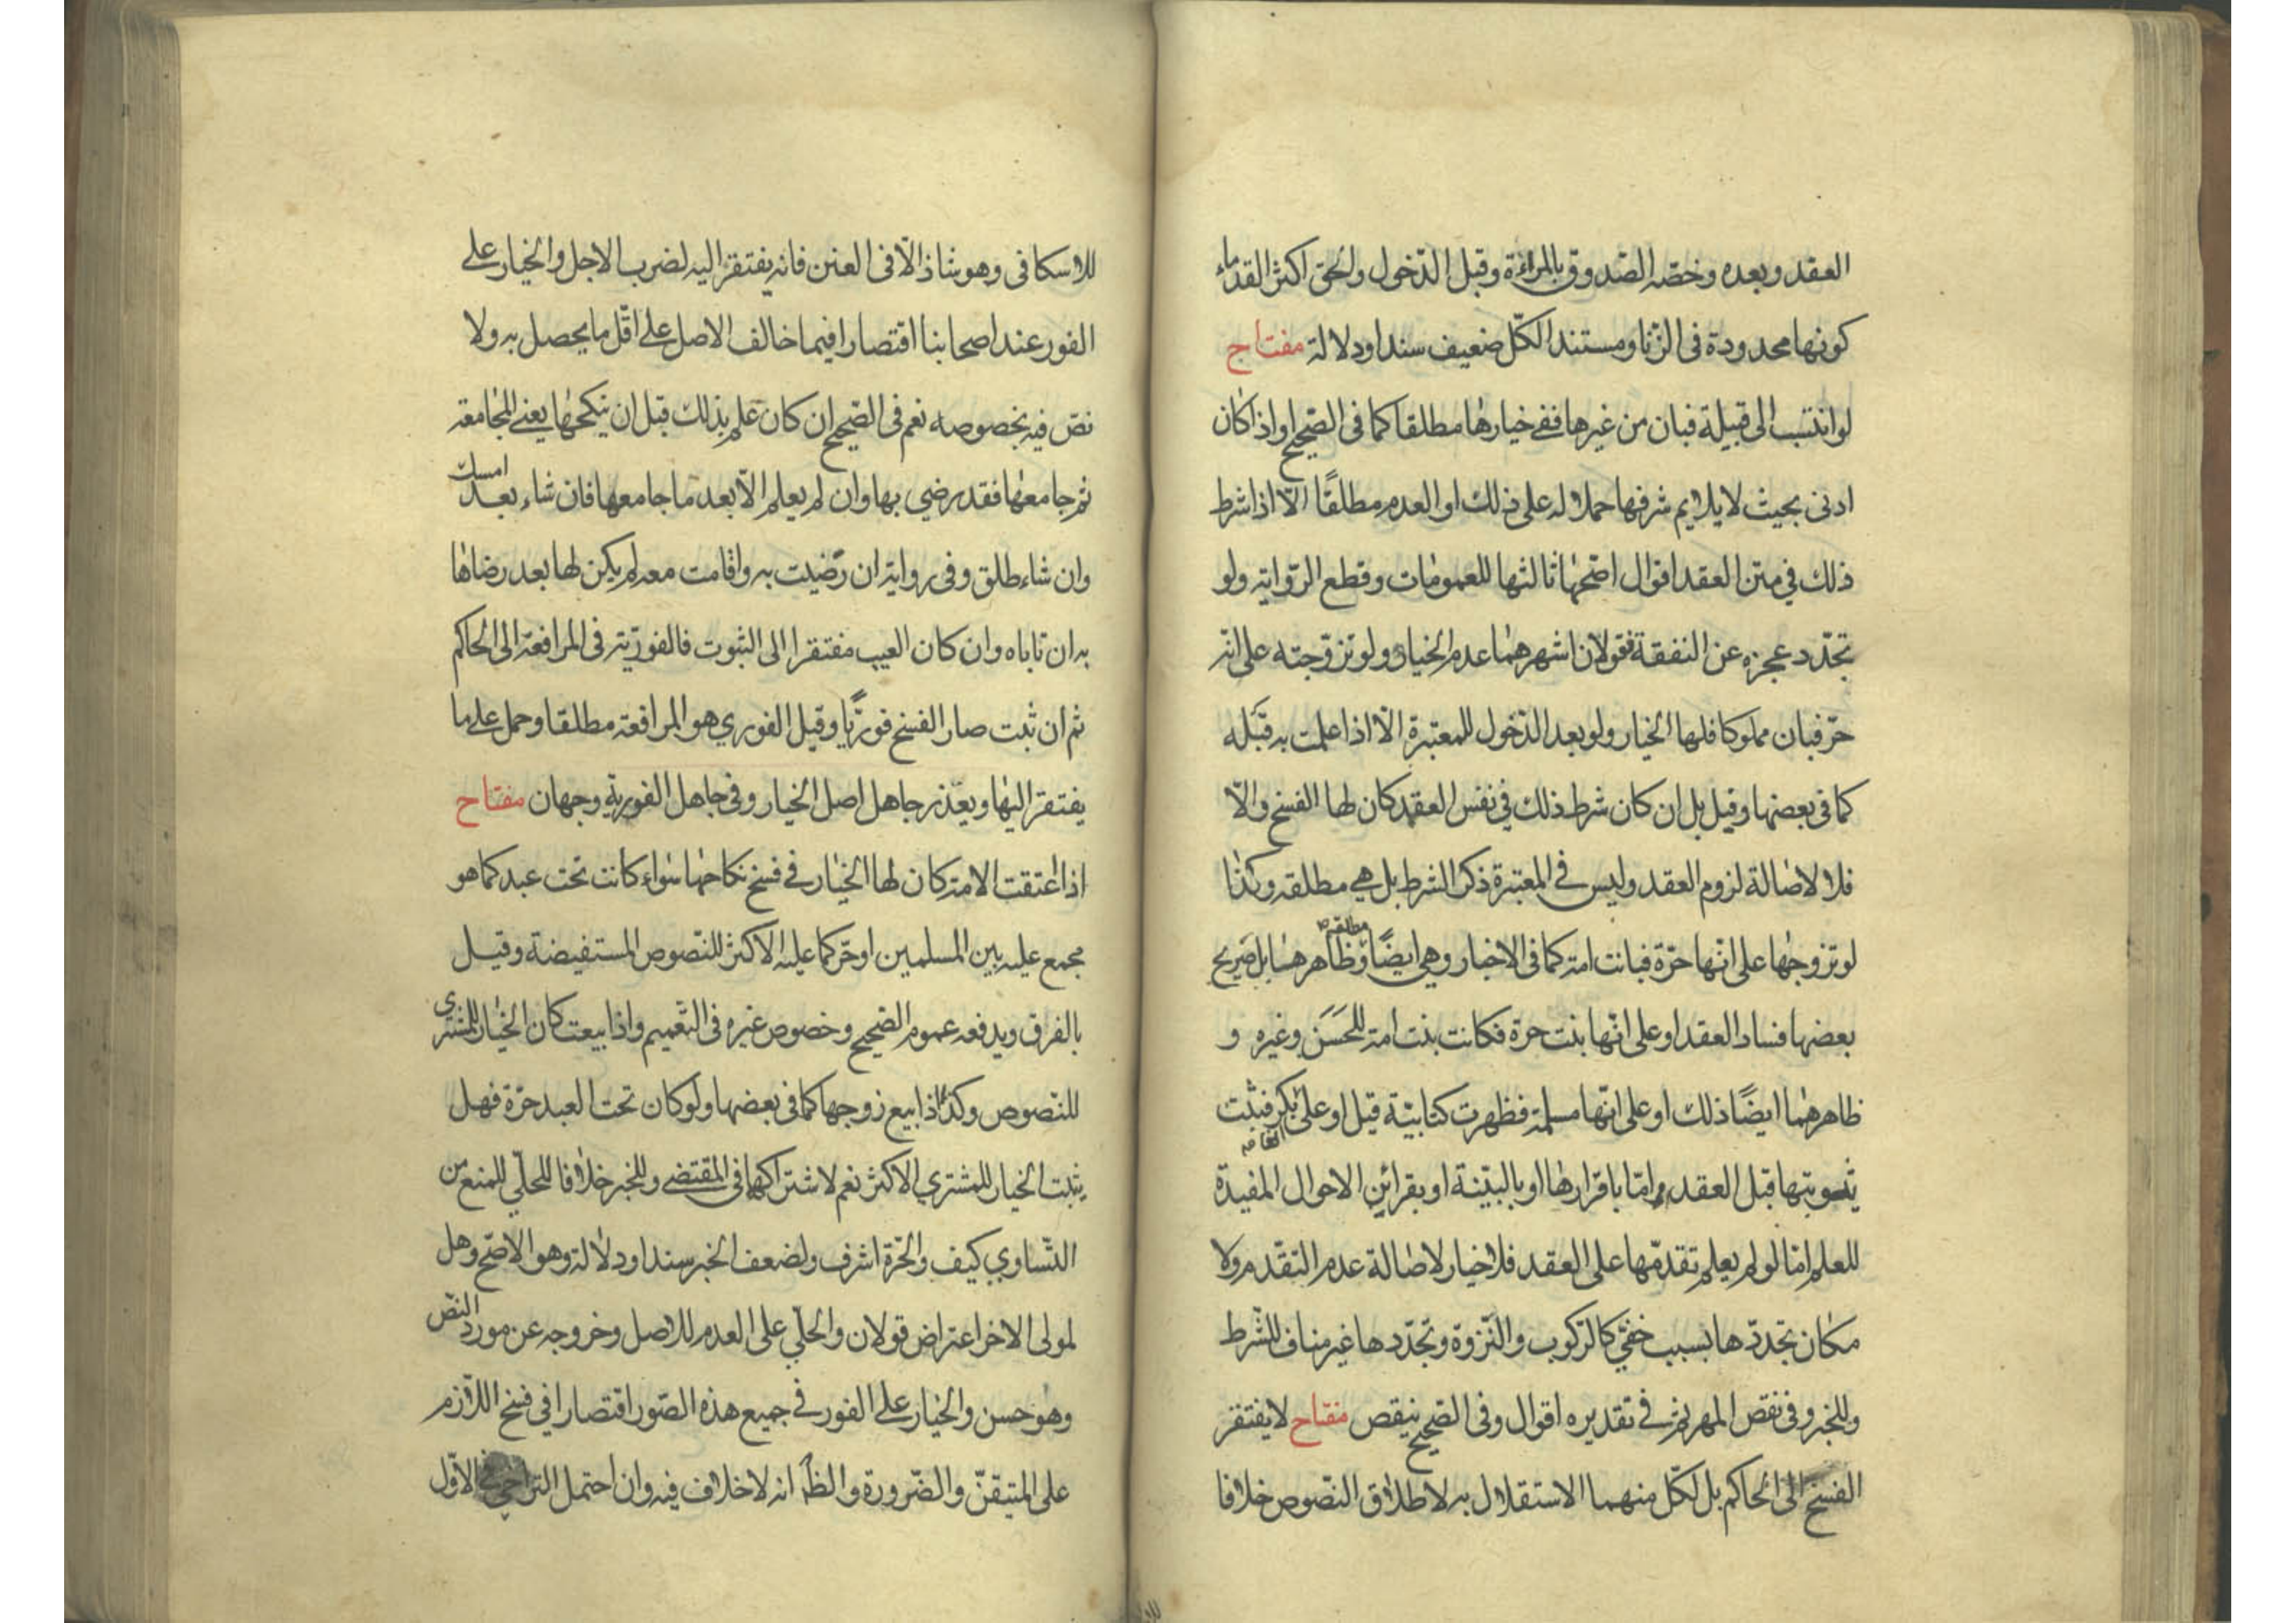 العقد وبعده وخصّه الصّدوق بالمرأة وقبل الدّخول والحق اكثر القدماء
كونها محدودة فى الزّنا ومستند الكّل ضعيف سندا ودلالة مفتاح
لو انتسب الى قبيلة فبان من غيرها ففى خيارها مطلقا كما فى الصّحيح او اذا كان
ادنى بحيث لا يلايم شرفها حملا له على ذلك او العدم مطلقًا الّا اذا شرط
ذلك في متن العقد اقوال اصّحها ثالثها للعمومات وقطع الرّواية ولو
تجدّد عجزه عن النفقة فقولان اشهرهما عدم الخيار ولو تزوّجته على انّه
حرّ فبان مملوكا فلها الخيار ولو بعد الدّخول للمعتبرة الّا اذا علمت به قبَله
كما فى بعضها وقيل بل ان كان شرط ذلك في نفس العقد كان لها الفسخ والّا
فلا لاصالة لزوم العقد وليس فى المعتبرة ذكر الشرط بل هي مطلقه وكذا
لو تزوجها على انّها حرّة فبانت امة كما فى الاخبار وهى ايضًا مطلقة وظاهرها بل صريح
بعضها فساد العقد او على انّها بنت حرة فكانت بنت امة للحَسَن وغيره و
ظاهرهما ايضًا ذلك او على انّها مسلمة فظهرت كتابيّة قيل او على بكر فثبت
ثيوبتها قبل العقد امّا باقرارها او بالبيّنة او بقرائن الاحوال المفيدة
للعلم امّا لو لم يعلم تقدّمها على العقد فلا خيار لاصالة عدم التقدّم ولا
مكان تجددّها بسبب خفىّ كالرّكوب والنّزوة وتجدّدها غير مناف للشّرط
وللخبر وفى نقص المهر ثم فى تقديره اقوال وفى الصّحيح ينقص مفتاح لا يفتقر
الفسخ الى الحاكم بل لكّل منهما الاستقلال به لاطلاق النّصوص خلافا
للاسكافى وهو شاذ الّا فى العنن فانه يفتقر اليه لضرب الاجل والخيار على
الفور عند اصحابنا اقتصارا فيما خالف الاصل على اقّل ما يحصل به ولا
نصّ فيه بخصوصه نعم فى الصّحيح ان كان علم بذلك قبل ان ينكحها يعنى المجامعة
ثم جامعها فقد رضي بها وان لم يعلم الّا بعد ما جامعها فان شاء بعد امسك
وان شاء طلق وفى رواية ان رَضيت به واقامت معه لم يكن لها بعد رضاها
به ان تاباه وان كان العيب مفتقرا الى الثبوت فالفوريّة فى المرافعة الى الحاكم
ثم ان ثبت صار الفسخ فوريًّا وقيل الفوري هو المرافعة مطلقا وحمل على ما
يفتقر اليها ويعذر جاهل اصل الخيار وفى جاهل الفورية وجهان مفتاح
اذا اعتقت الامة كان لها الخيار فى فسخ نكاحها سواء كانت تحت عبد كما هو
مجمع عليه بين المسلمين او حرّ كما عليه الاكثر للنّصوص المستفيضة وقيل
بالفرق ويدفعه عموم الصّحيح وخصوص غيره فى التّعميم واذا بيعت كان الخيار للمشترى
للنّصوص وكذا اذا بيع زوجها كما فى بعضها ولو كان تحت العبد حرّة فهل
يثبت الخيار للمشتري الاكثر نعم لاشتراكهما فى المقتضى وللخبر خلافا للحلّي للمنع من
التّساوي كيف والحّرة اشرف ولضعف الخبر سندا ودلالة وهو الاصّح وهل
لمولى الاخر اعتراض قولان والحلّي على العدم للاصل وخروجه عن مورد النصّ
وهو حسن والخيار على الفور فى جميع هذه الصّور اقتصارا في فسخ اللّازم
على المتيقنّ والضّرورة والظّ انه لا خلاف فيه وان احتمل التراخي فى الاوّل